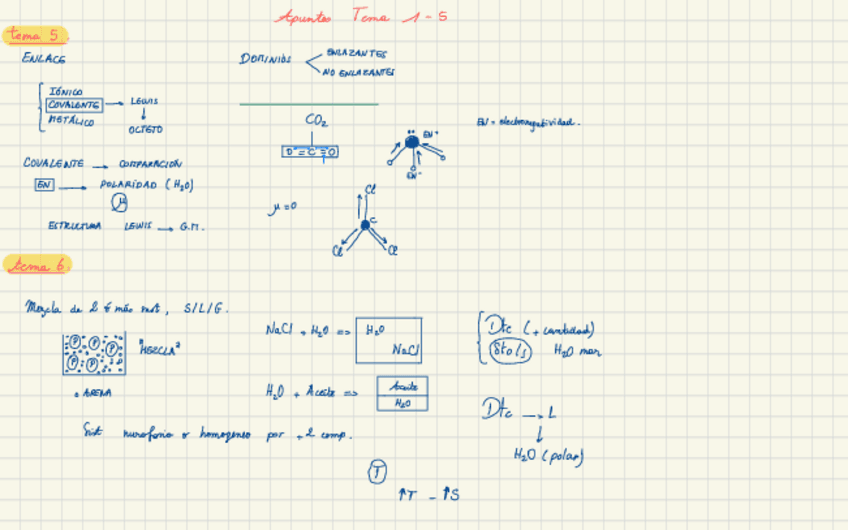 Apuntes Tema 1-5
tema 5
ENLACE
IÓNICO
COVALENTE → LEWIS
METÁLICO
OCTETO
COVALENTE → COMPARACIÓN
EN → POLARIDAD (H₂O)
μ
ESTRUCTURA LEWIS → G.M.
DOMINIOS
ENLAZANTES
NO ENLAZANTES
CO₂
O=C=O
EN⁺
EN⁻
EN = electronegatividad.
μ=0
Cl
C
Cl Cl
tema 6
Mezcla de 2 ó más sust, S/L/G.
"MEZCLA"
ARENA
NaCl + H₂O => H₂O
NaCl
H₂O + Aceite => Aceite
H₂O
homogéneo por +2 comp.
Dtc (+ cantidad)
H₂O mar
Dtc → L
H₂O (polar)
T
↑T - ↑S